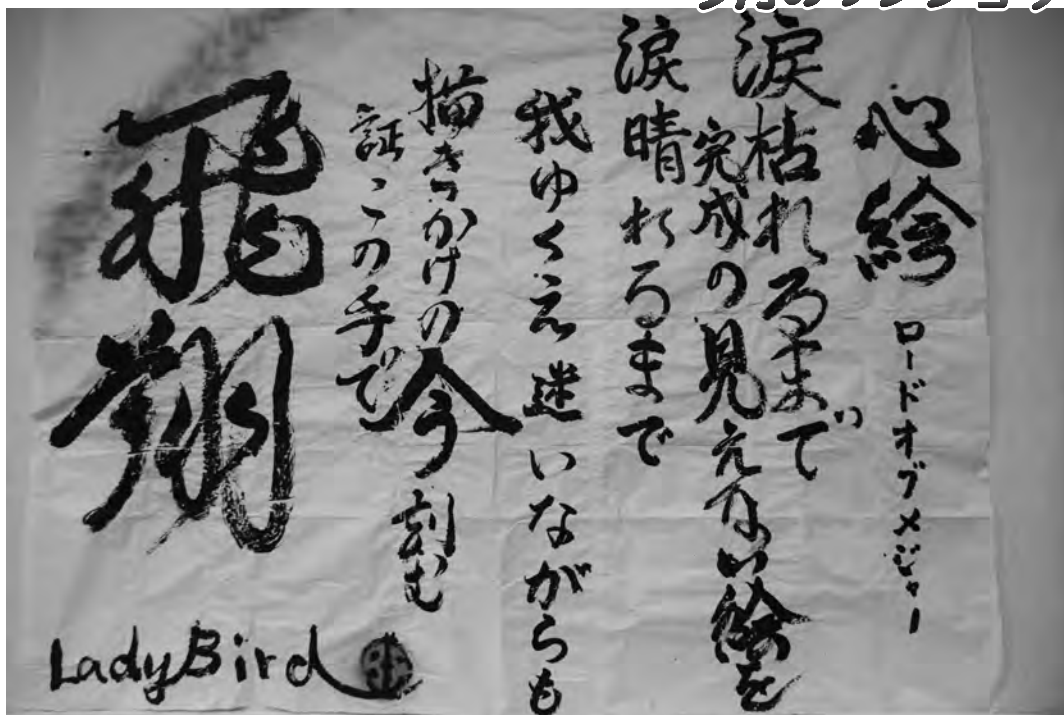 心絵 ロードオブメジャー
涙枯れるまで
完成の見えない絵を
涙晴れるまで
我ゆくえ迷いながらも
描きかけの今刻む
証この手で
飛翔
LadyBird